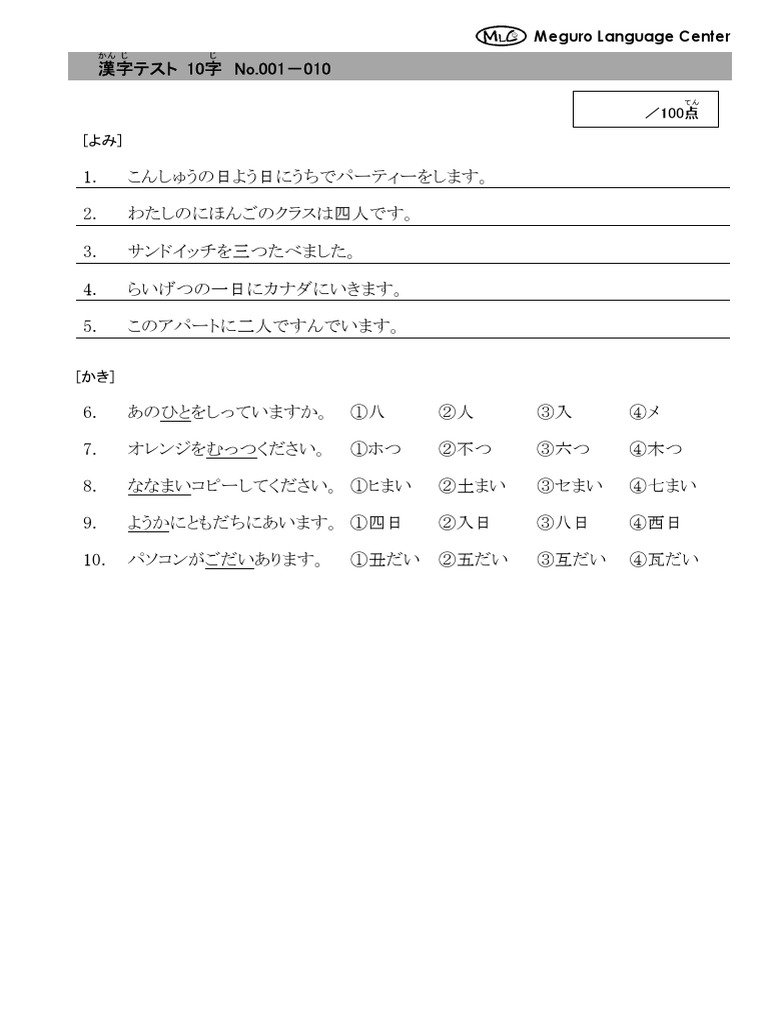 MLC Meguro Language Center
かんじ じ
漢字テスト 10字 No.001－010
てん
／100点
[よみ]
1. こんしゅうの日よう日にうちでパーティーをします。
2. わたしのにほんごのクラスは四人です。
3. サンドイッチを三つたべました。
4. らいげつの一日にカナダにいきます。
5. このアパートに二人ですんでいます。
[かき]
6. あのひとをしっていますか。 ①八 ②人 ③入 ④メ
7. オレンジをむっつください。 ①ホつ ②不つ ③六つ ④木つ
8. ななまいコピーしてください。 ①ヒまい ②土まい ③セまい ④七まい
9. ようかにともだちにあいます。 ①四日 ②入日 ③八日 ④西日
10. パソコンがごだいあります。 ①丑だい ②五だい ③互だい ④瓦だい